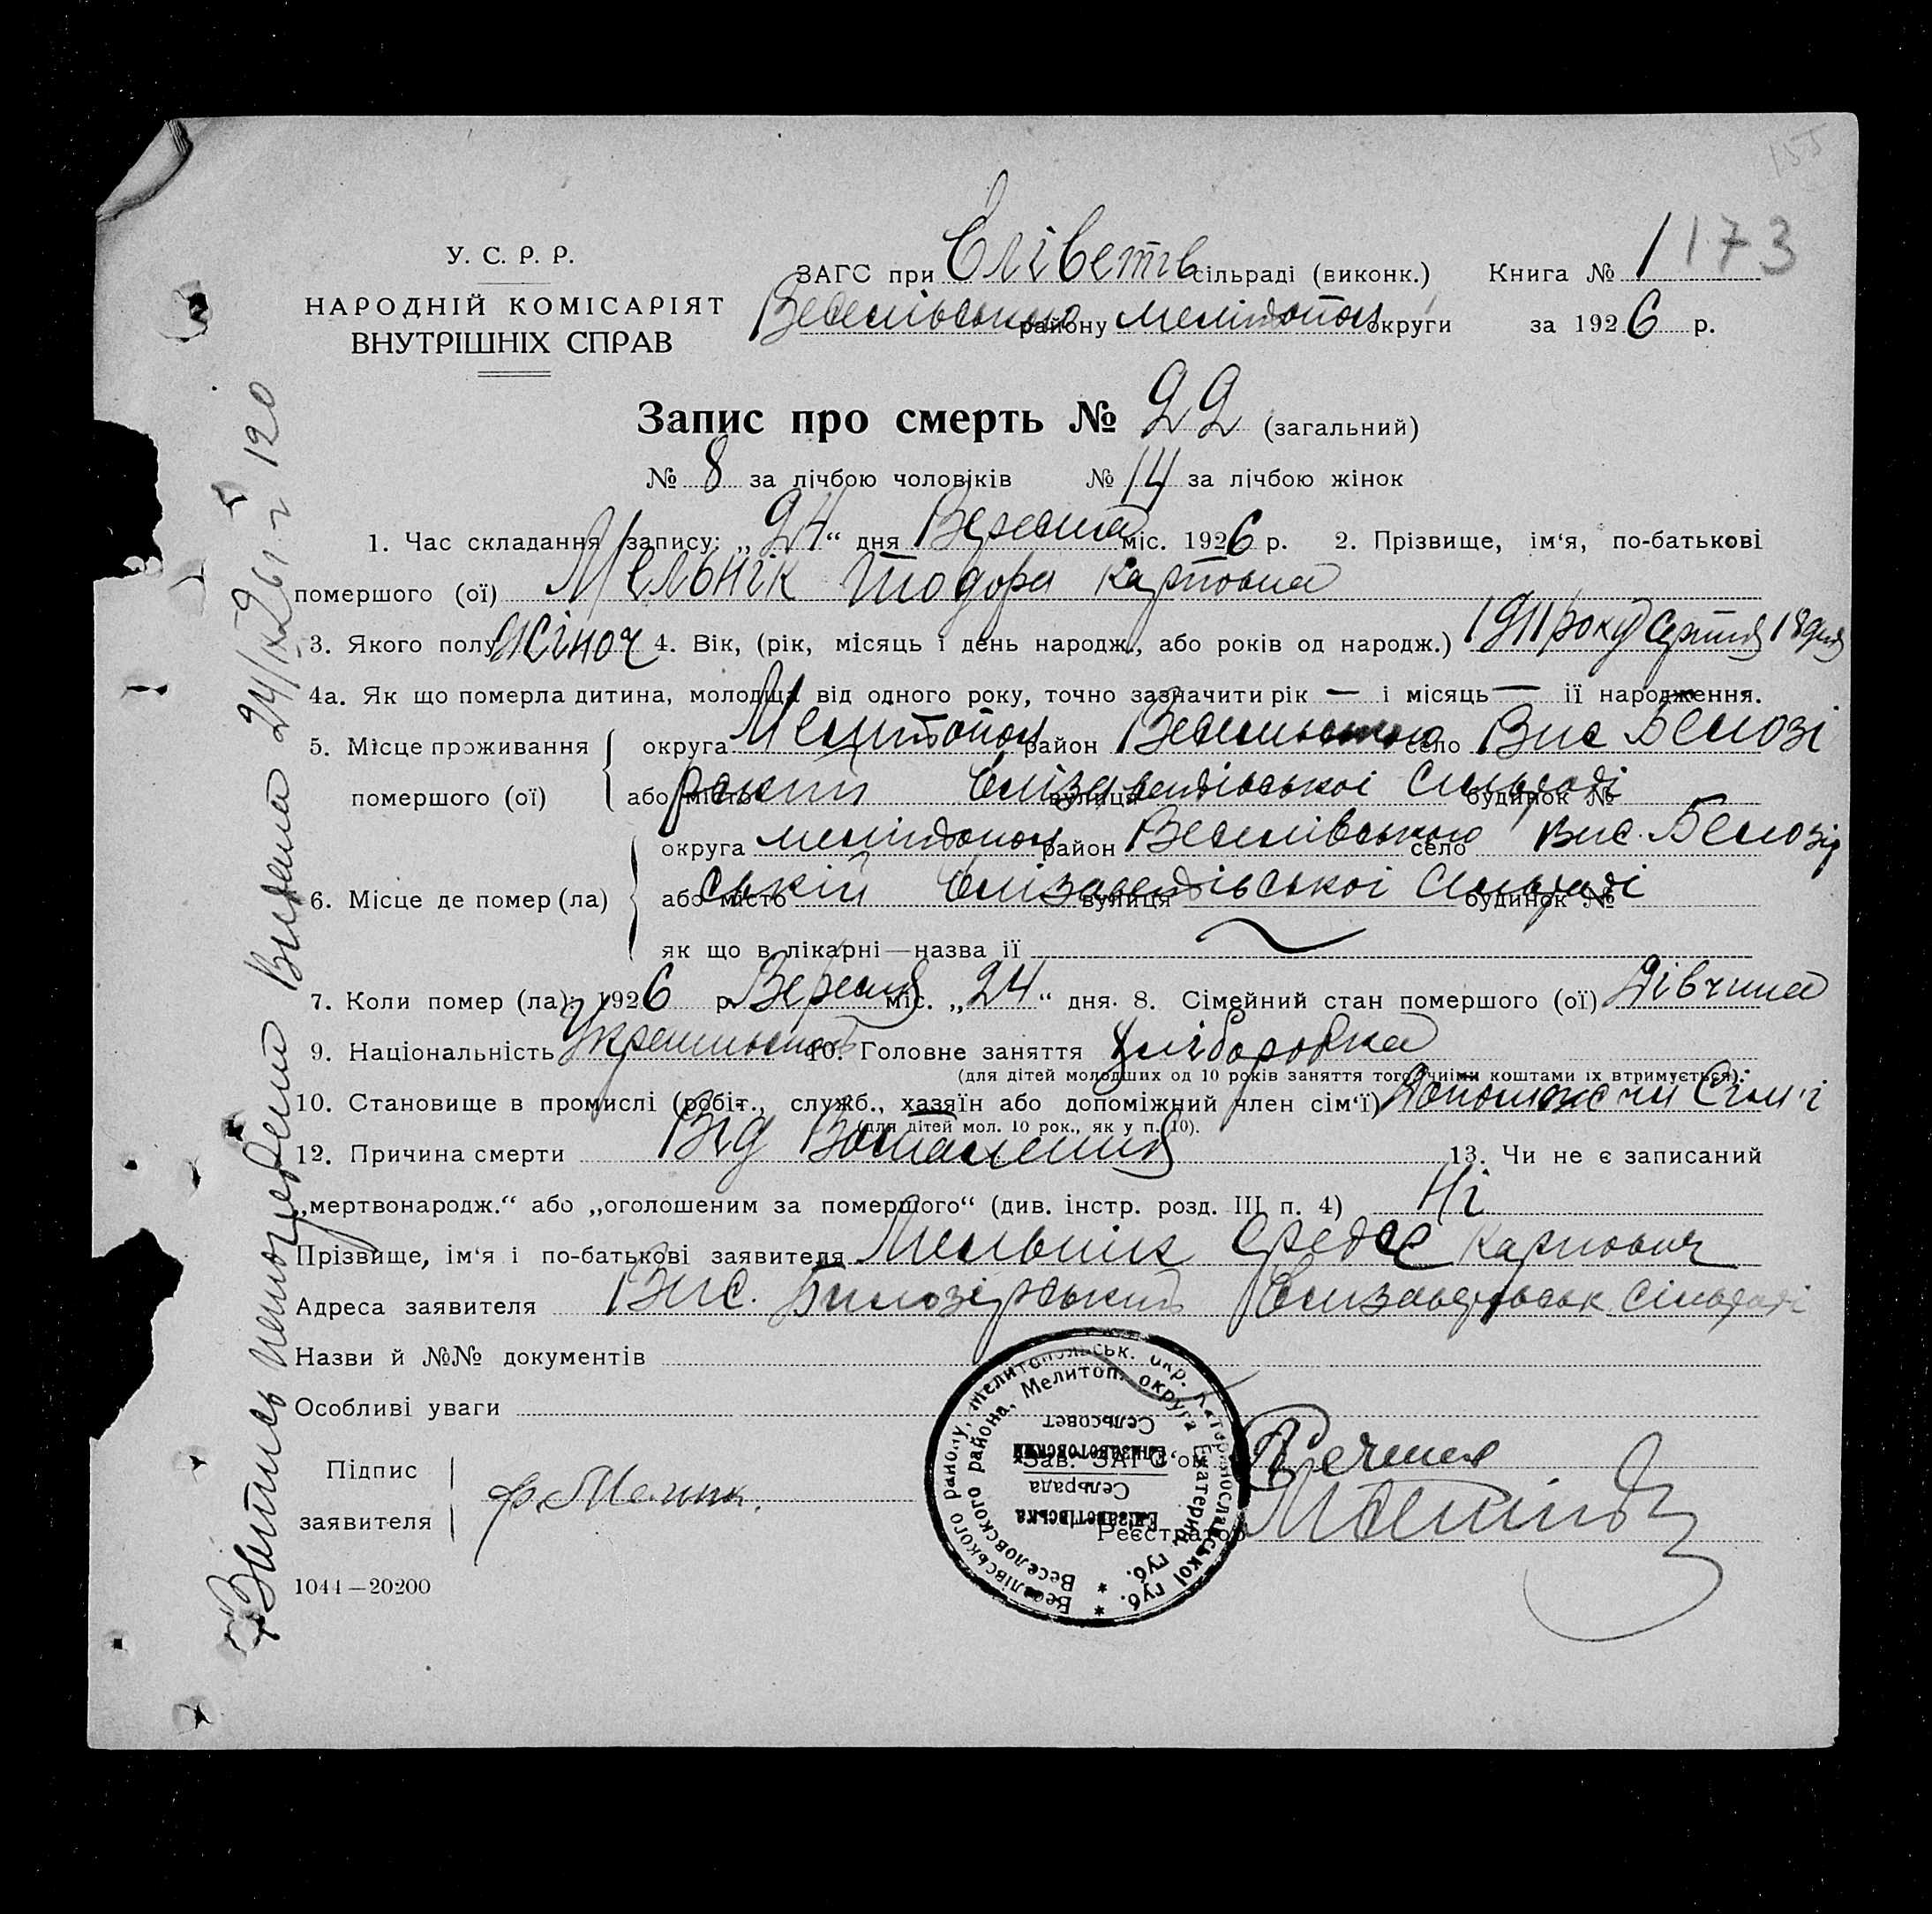 173
У. С. Р. Р.
НАРОДНІЙ КОМІСАРІЯТ
ВНУТРІШНІХ СПРАВ
ЗАГС при Єліветів сільраді (виконк.) Книга № 1
Веселівського району Мелітопол округи за 1926 р.
Запис про смерть № 22 (загальний)
№ 8 за лічбою чоловіків № 14 за лічбою жінок
1. Час складання запису: „24“ дня Вересня міс. 1926 р. 2. Прізвище, ім‘я, по-батькові
помершого (ої) Мельнік Тодора Карповна
3. Якого полу жіноч 4. Вік, (рік, місяць і день народж., або років од народж.) 1911 року Серпня 18 дня
4а. Як що померла дитина, молодща від одного року, точно зазначити рік — і місяць — її народження.
5. Місце проживання округа Мелітопол район Веселивського село Вис Белозі
помершого (ої) або місто рский вулиця Єлізаветівськоі Сильраді будинок №
округа Мелітопол район Веселівського село Вис. Белозір
6. Місце де помер (ла) або місто ський вулиця Єлізаветівськоі Сильраді будинок №
як що в лікарні—назва її
7. Коли помер (ла): 1926 р. Вересня міс. „24“ дня. 8. Сімейний стан помершого (ої) Дівчина
9. Національність 10. Головне заняття хліборобка
(для дітей молодших од 10 років заняття того, чиїми коштами їх втримується).
10. Становище в промислі (робіт., служб., хазяїн або допоміжний член сім‘ї) Сем'і
(для дітей мол. 10 рок., як у п. 10).
12. Причина смерти Від Воспаления 13. Чи не є записаний
„мертвонародж.“ або „оголошеним за помершого“ (див. інстр. розд. III п. 4) Ні
Прізвище, ім‘я і по-батькові заявителя Мельник Карпович
Адреса заявителя Вис. Билозірський Сільраді
Назви й №№ документів
Особливі уваги
Підпис
заявителя
Зав. ЗАГС‘ом
Реєстратор
Веселівського району, Мелитопольськ. окр. Катеринославської губ.
Веселовского района, Мелитоп. округа Екатерин. губ.
Елизаветовский
Сельсовет
Єлізаветівська
Сельрада
1044—20200